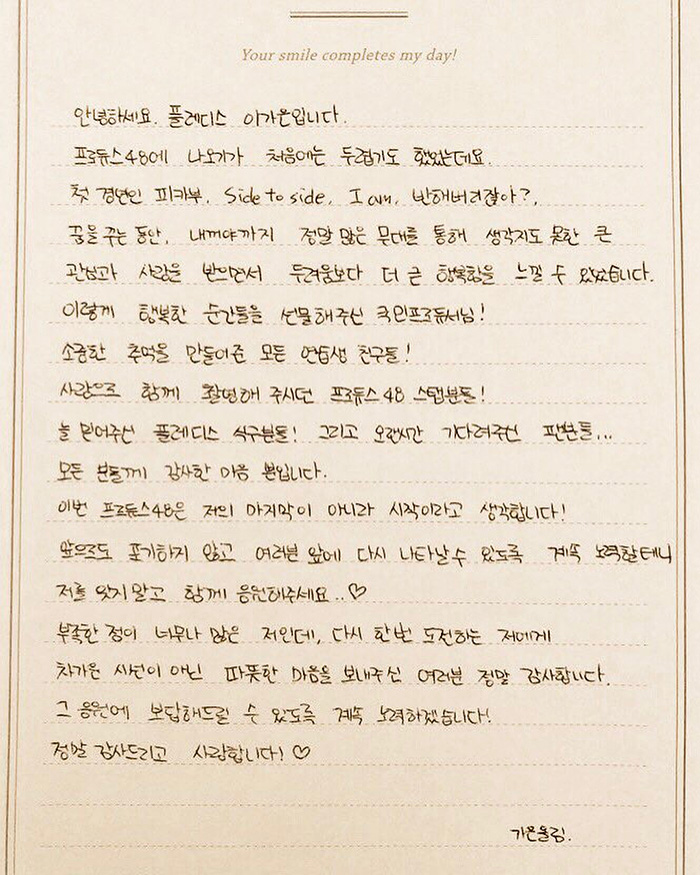 Your smile completes my day!
안녕하세요. 플레디스 이가은입니다.
프로듀스48에 나오기가 처음에는 두렵기도 했었는데요.
첫 경연인 피카부, Side to side, I am, 반해버리잖아?,
꿈을 꾸는 동안, 내꺼야까지 정말 많은 무대를 통해 생각지도 못한 큰
관심과 사랑을 받으면서 두려움보다 더 큰 행복함을 느낄 수 있었습니다.
이렇게 행복한 순간들을 선물해주신 국민프로듀서님!
소중한 추억을 만들어준 모든 연습생 친구들!
사랑으로 함께 촬영해 주시던 프로듀스 48 스탭분들!
늘 믿어주신 플레디스 식구분들! 그리고 오랜시간 기다려주신 팬분들...
모든 분들께 감사한 마음 뿐입니다.
이번 프로듀스48은 저의 마지막이 아니라 시작이라고 생각합니다!
앞으로도 포기하지 않고 여러분 앞에 다시 나타날 수 있도록 계속 노력할테니
저를 잊지말고 함께 응원해주세요..♡
부족한 점이 너무나 많은 저인데, 다시 한번 도전하는 저에게
차가운 시선이 아닌 따뜻한 마음을 보내주신 여러분 정말 감사합니다.
그 응원에 보답해드릴 수 있도록 계속 노력하겠습니다!
정말 감사드리고 사랑합니다! ♡
가은올림.